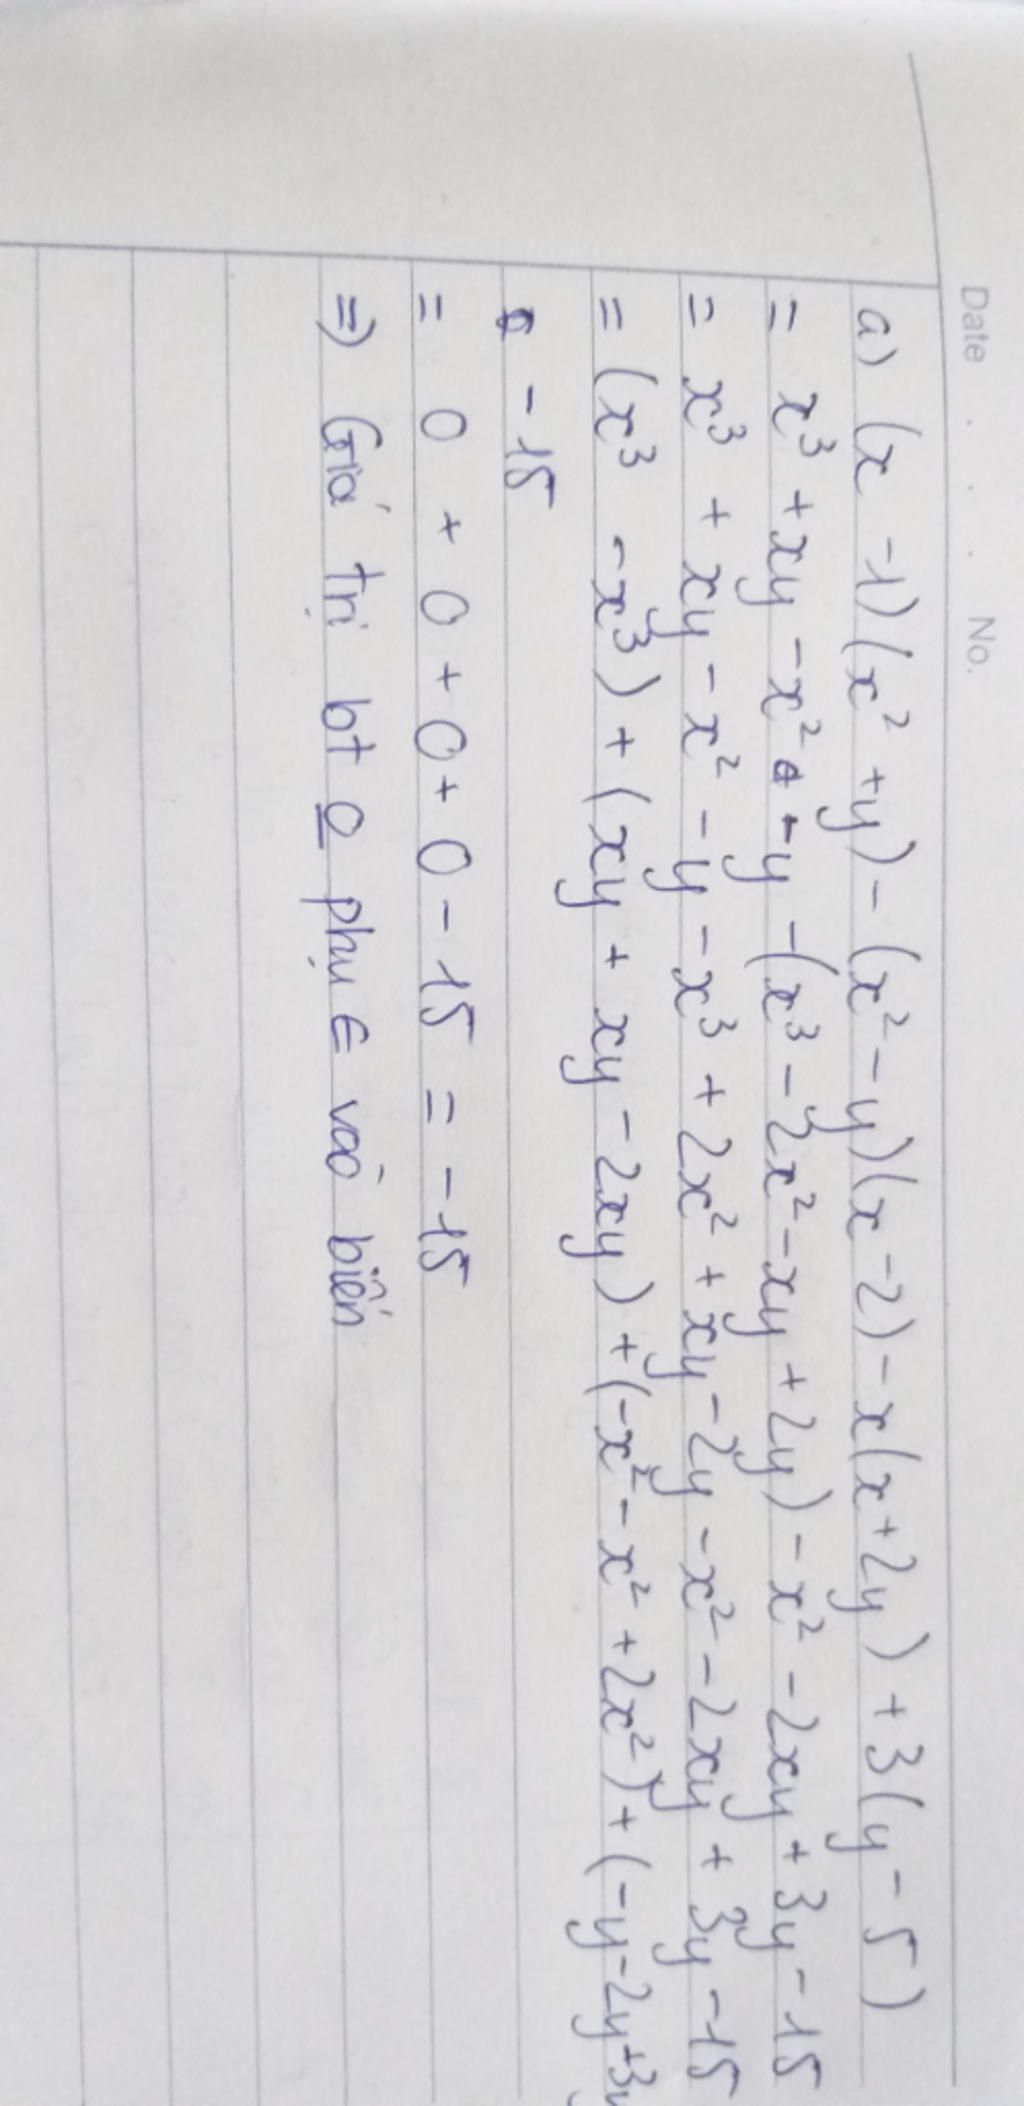 Date . . . No.
a) (x -1)(x² +y) - (x² - y)(x -2) - x(x+2y) +3(y - 5)
= x³ +xy -x² -y -(x³ - 2x² -xy +2y) - x² - 2xy +3y -15
= x³ + xy - x² - y - x³ + 2x² + xy - 2y - x² - 2xy + 3y -15
= (x³ -x³) + (xy + xy - 2xy) + (-x² - x² +2x²) + (-y-2y+3y
- 15
= 0 + 0 + 0 + 0 - 15 = -15
=) Giá trị bt o phụ ∈ vào biến